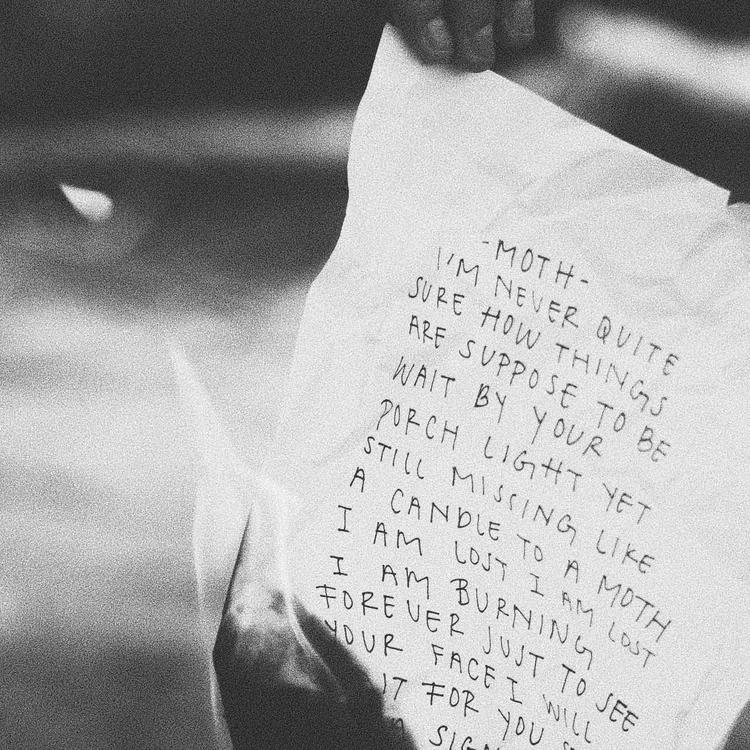 -MOTH-
I'M NEVER QUITE
SURE HOW THINGS
ARE SUPPOSE TO BE
WAIT BY YOUR
PORCH LIGHT YET
STILL MISSING LIKE
A CANDLE TO A MOTH
I AM LOST I AM LOST
I AM BURNING
FOREVER JUST TO SEE
YOUR FACE I WILL
IT FOR YOU